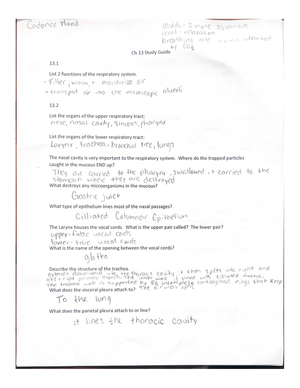 Cadence Hand
Ch 13 Study Guide
13.1
List 2 functions of the respiratory system.
- Filter, warm, + moisturize air
- transport air into the microscopic alveoli
13.2
List the organs of the upper respiratory tract:
nose, nasal cavity, sinuses, pharynx
List the organs of the lower respiratory tract:
Larynx, trachea, bronchial tree, lungs
The nasal cavity is very important to the respiratory system. Where do the trapped particles
caught in the mucous END up?
They are carried to the pharynx, swallowed, + carried to the
stomach where they are destroyed
What destroys any microorganisms in the mucous?
Gastric juice
What type of epithelium lines most of the nasal passages?
Cilliated Columnar Epithelium
The Larynx houses the vocal cords. What is the upper pair called? The lower pair?
upper-false vocal cords
lower-true vocal cords
What is the name of the opening between the vocal cords?
glottis
Describe the structure of the trachea.
the thoracic cavity, + then splits into right and
the trachea wall is supported by 20 incomplete cartilaginous rings that keep
the airway open
What does the visceral pleura attach to?
To the lung
What does the parietal pleura attach to or line?
it lines the thoracic cavity